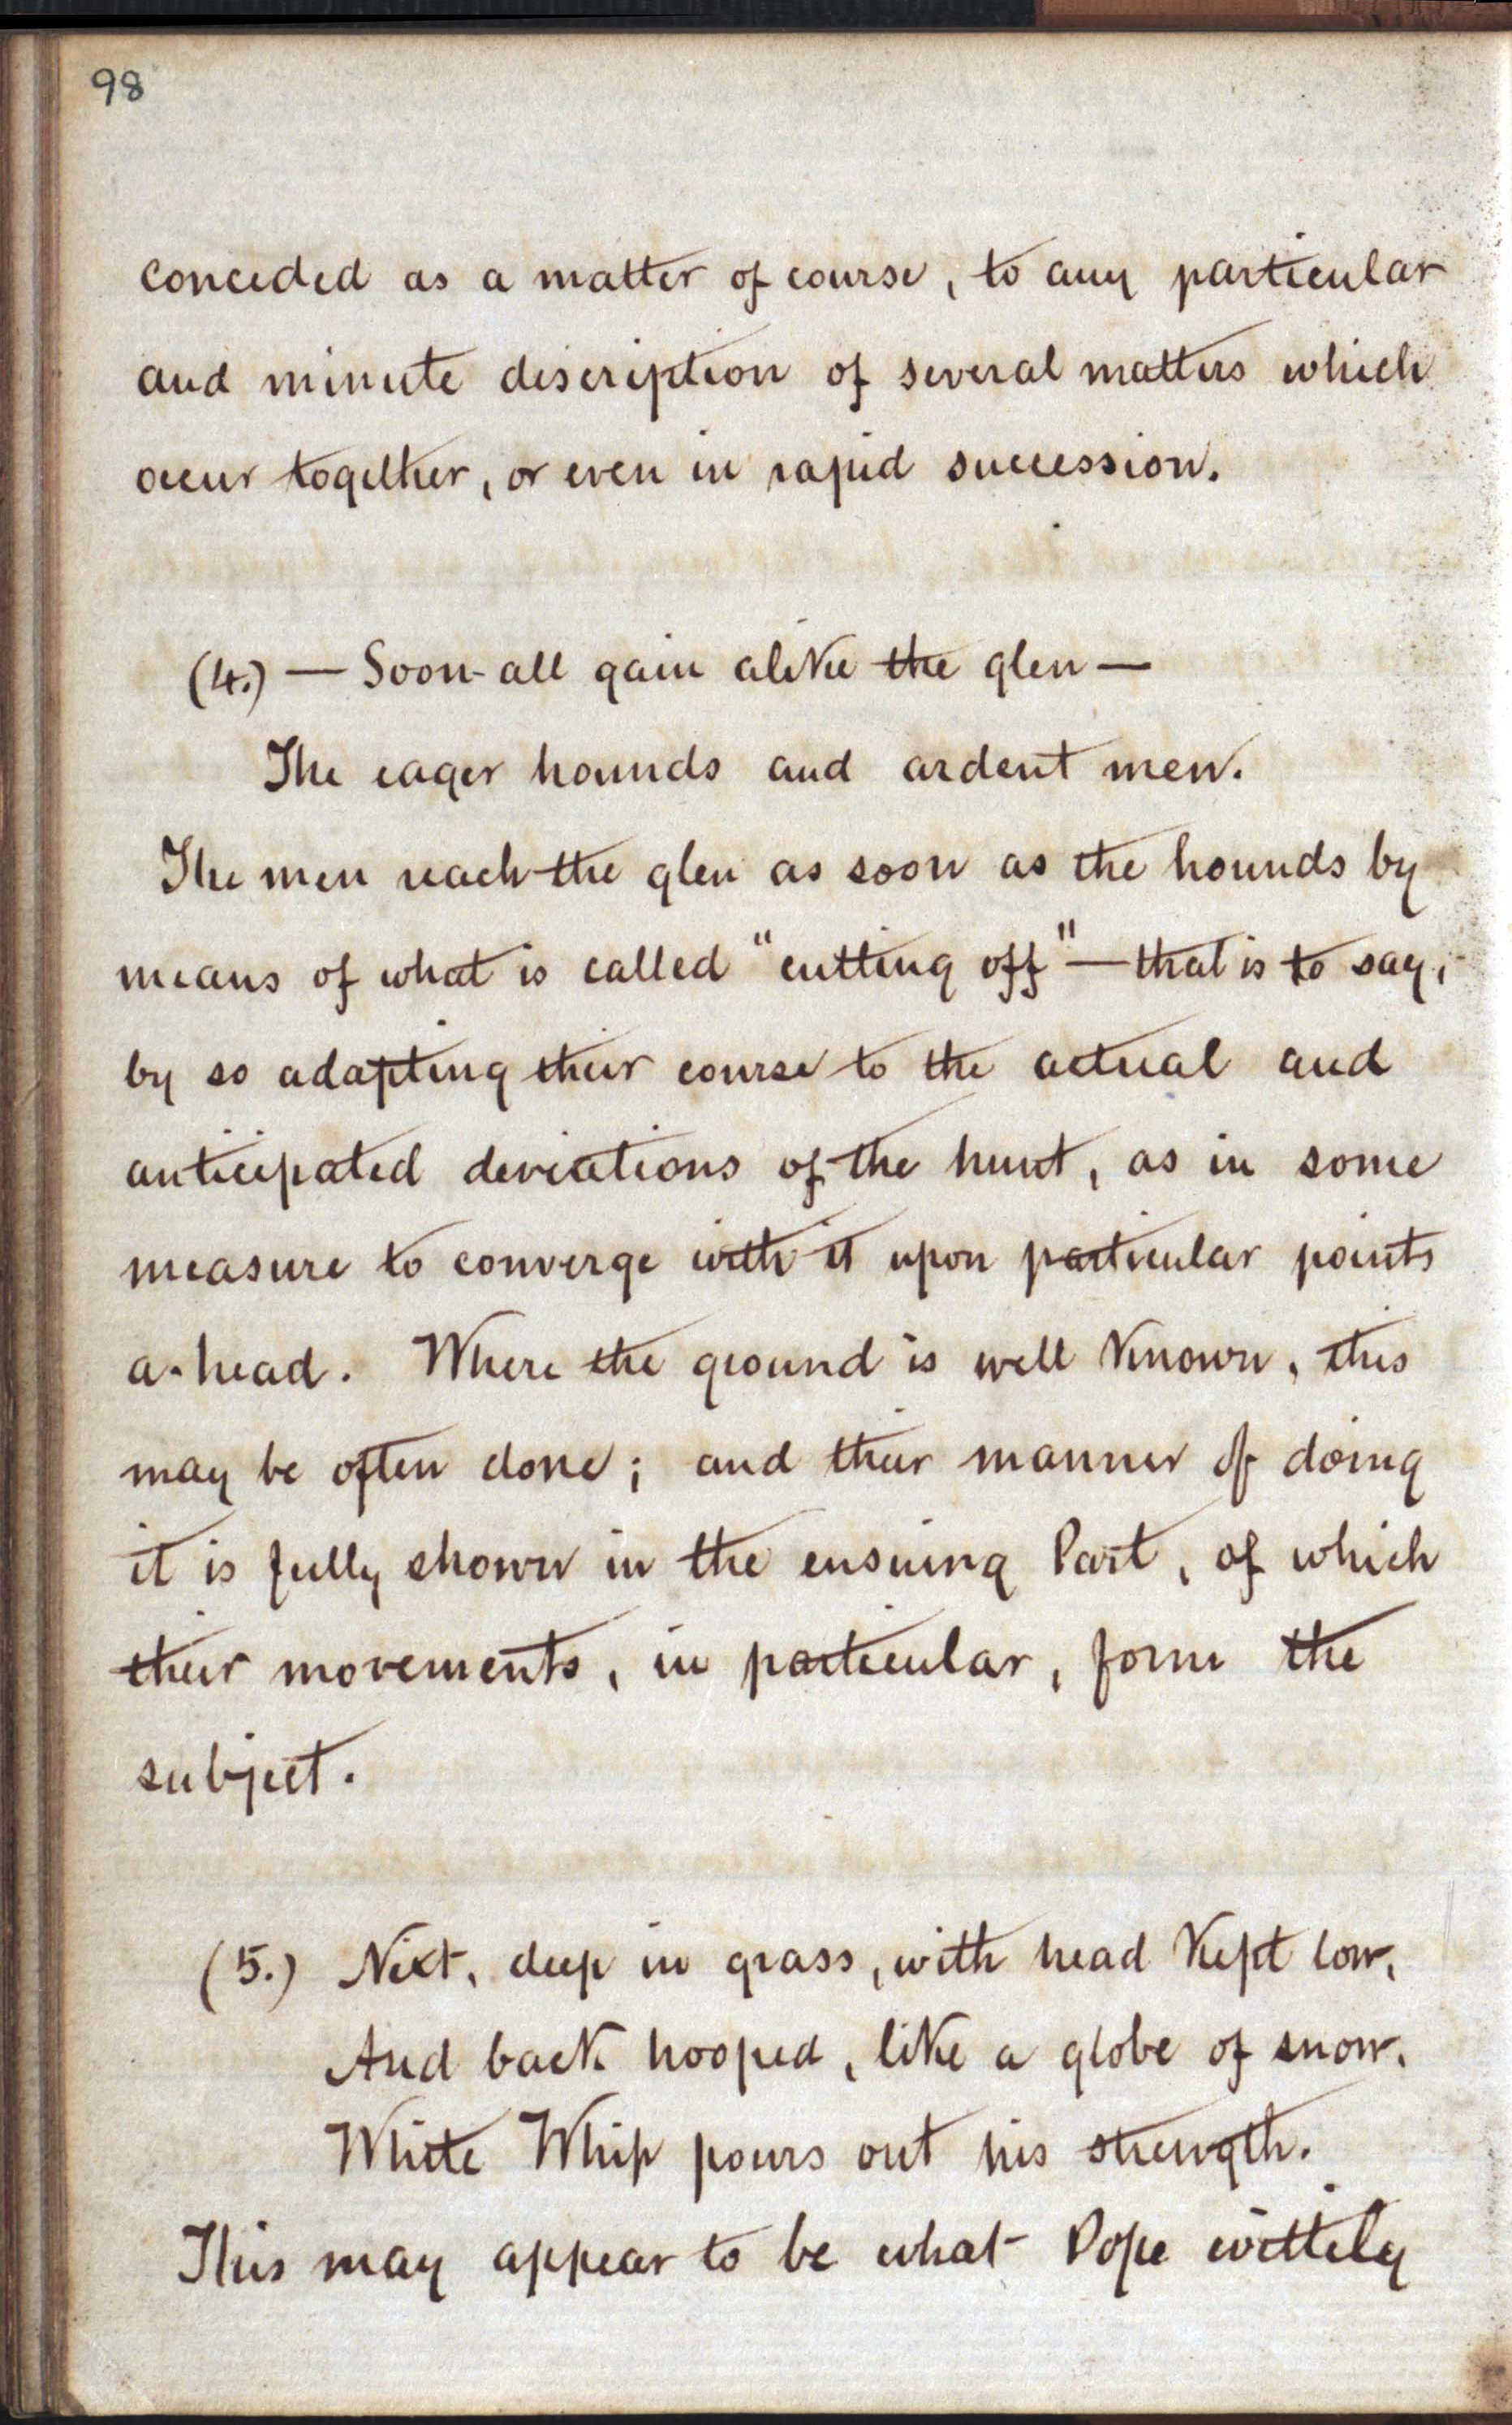 98
conceded as a matter of course, to any particular
and minute description of several matters which
occur together, or even in rapid succession.
(4.) — Soon all gain alike the glen —
The eager hounds and ardent men.
The men reach the glen as soon as the hounds by
means of what is called "cutting off" — that is to say,
by so adapting their course to the actual and
anticipated deviations of the hunt, as in some
measure to converge with it upon particular points
a-head. Where the ground is well known, this
may be often done; and their manner of doing
it is fully shown in the ensuing Part, of which
their movements, in particular, form the
subject.
(5.) Next, deep in grass, with head kept low,
And back hooped, like a globe of snow,
White Whip pours out his strength.
This may appear to be what Pope wittily